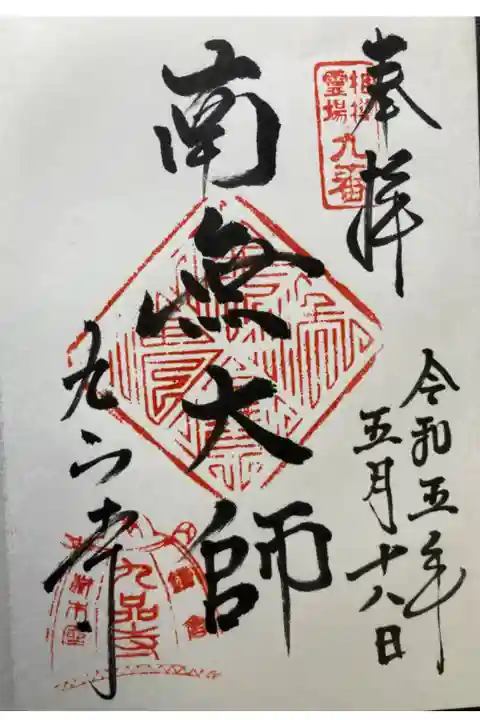 奉拝
相模
霊場
九番
令和五年
五月十八日
南無大師
九品寺
鎌倉
九品寺
材木座